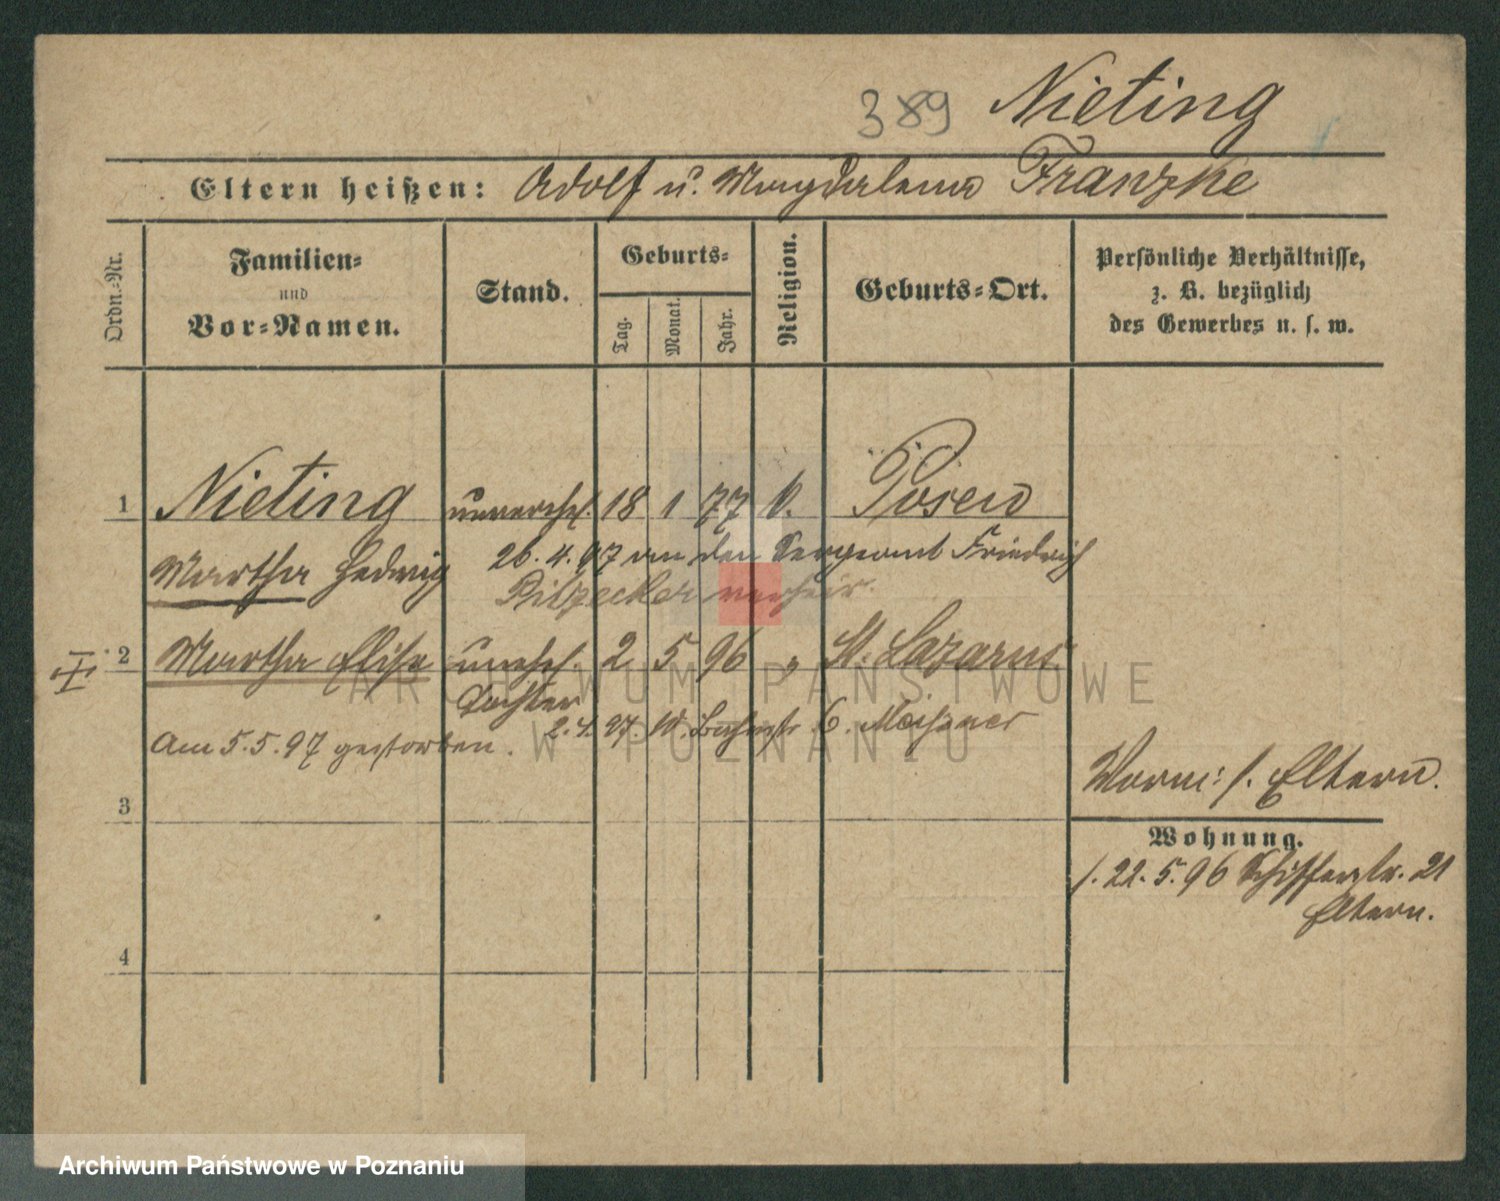 389 Nieting
Eltern heißen: Adolf u. Magdalena Franzke
Ordn.-Nr.
Familien-
und
Vor-Namen.
Stand.
Geburts-
Tag.
Monat.
Jahr.
Religion.
Geburts-Ort.
Persönliche Verhältnisse,
z. B. bezüglich
des Gewerbes u. s. w.
1 Nieting unverehel. 18 1 77 k. Posen
Martha Hedwig
26. 4. 97 an den Sergeant Friedrich
verheir.
2 Martha Elise unehel. 2 5 96 " St. Lazarus
Tochter
2. 4. 97. W. 6.
Am 5. 5. 97 gestorben.
Eltern.
3
Wohnung.
f. 22. 5. 96 Schifferstr. 21
Eltern.
4
ARCHIWUM PAŃSTWOWE
W POZNANIU
Archiwum Państwowe w Poznaniu